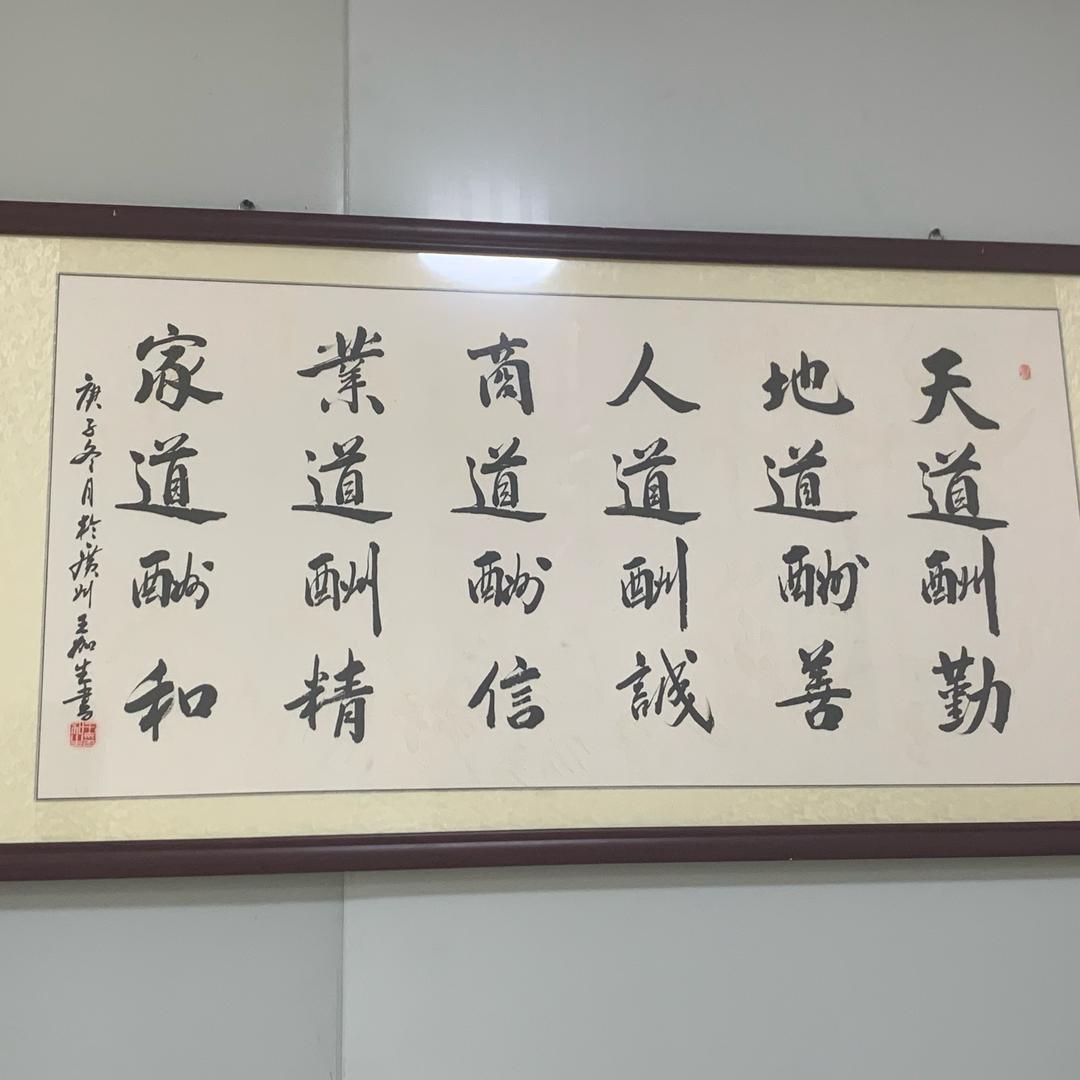 天道酬勤
地道酬善
人道酬誠
商道酬信
業道酬精
家道酬和
庚子冬月於廣州王加生書